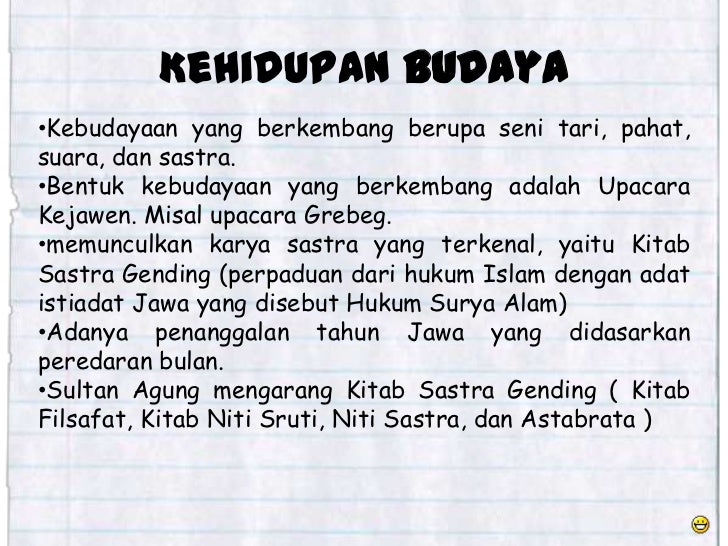 KEHIDUPAN BUDAYA
•Kebudayaan yang berkembang berupa seni tari, pahat,
suara, dan sastra.
•Bentuk kebudayaan yang berkembang adalah Upacara
Kejawen. Misal upacara Grebeg.
•memunculkan karya sastra yang terkenal, yaitu Kitab
Sastra Gending (perpaduan dari hukum Islam dengan adat
istiadat Jawa yang disebut Hukum Surya Alam)
•Adanya penanggalan tahun Jawa yang didasarkan
peredaran bulan.
•Sultan Agung mengarang Kitab Sastra Gending ( Kitab
Filsafat, Kitab Niti Sruti, Niti Sastra, dan Astabrata )